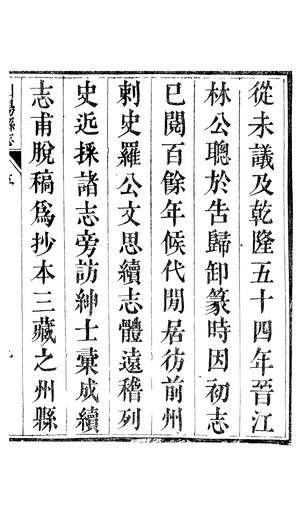 從未議及乾隆五十四年晉江
林公聰於告歸卸篆時因初志
已閱百餘年候代閒居彷前州
刺史羅公文思續志體遠稽列
史近採諸志旁訪紳士彙成續
志甫脫稿為抄本三藏之州縣